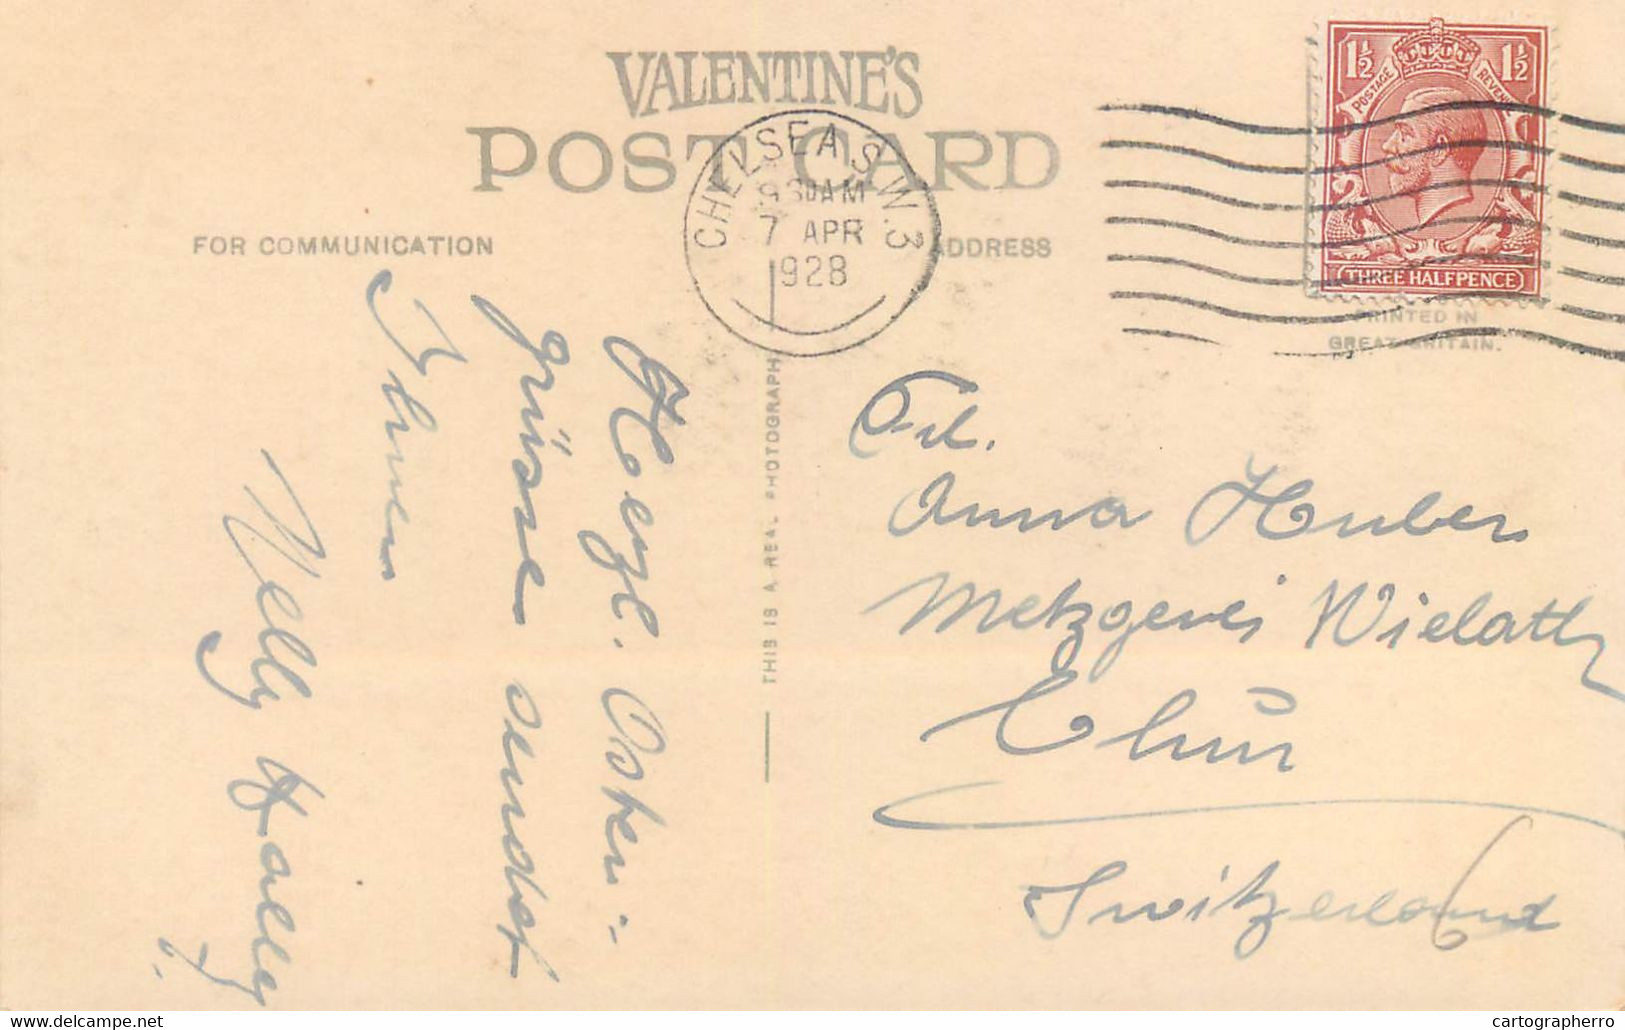 VALENTINE'S
POST CARD
FOR COMMUNICATION
ADDRESS
CHELSEA S.W.3
9 30 AM
7 APR
1928
1½ 1½
POSTAGE REVENUE
THREE HALFPENCE
PRINTED IN
GREAT BRITAIN.
THIS IS A REAL PHOTOGRAPH
Herzl. Oster-
grüsse sendet
Ihnen
Nelly
Frl.
Anna Huber
Metzgerei Wielath
Chur
Switzerland
www.delcampe.net
cartographerro